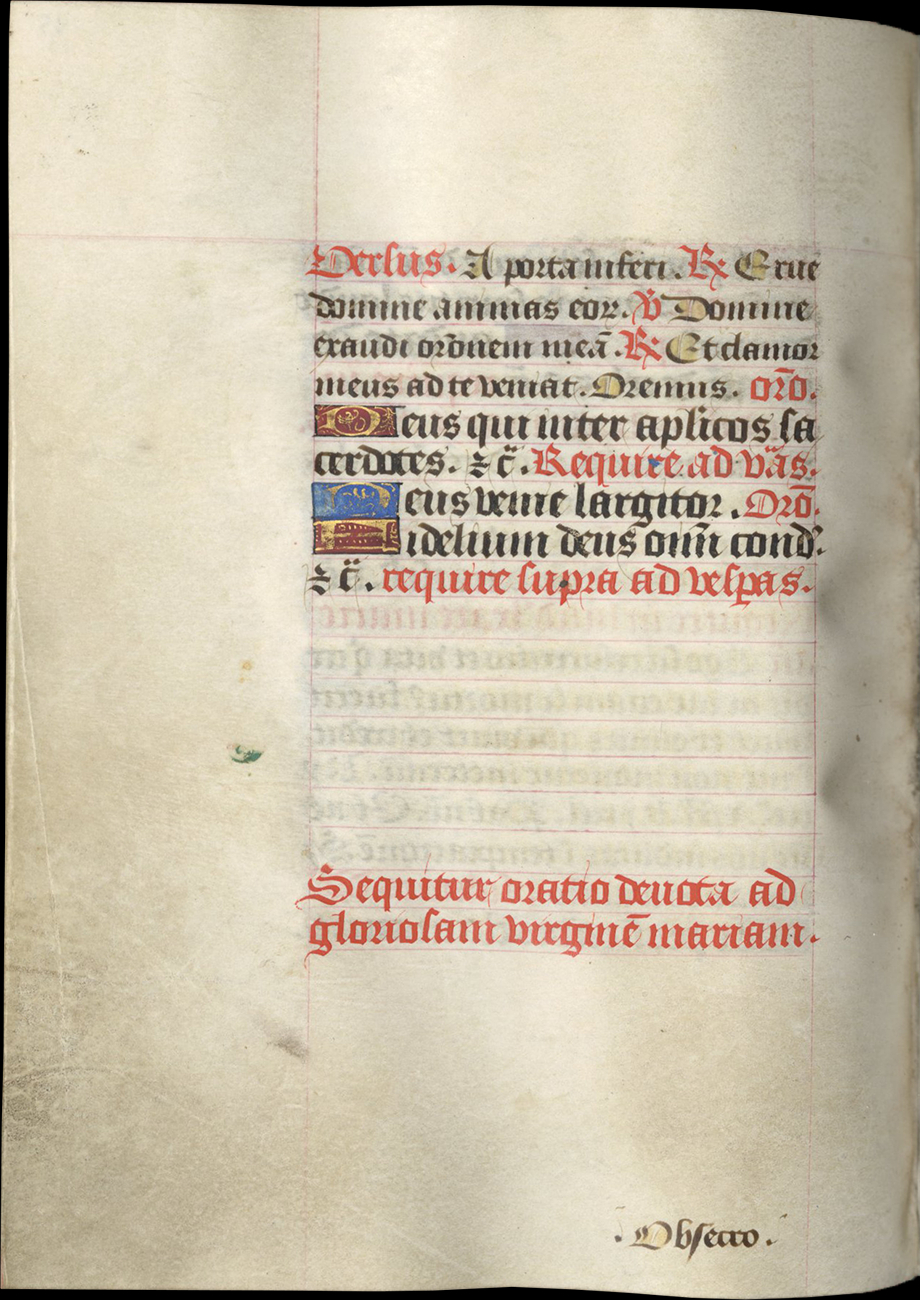 Versus. A porta inferi. ℞ Erue
domine animas eoꝝ. ℣ Domine
exaudi orōnem meā. ℞ Et clamor
meus ad te veniat. Oremus. orō.
Deus qui inter aplicos sa
cerdotes. ⁊ c̄. Require ad vas.
Deus venie largitor. Orō.
Fidelium deus oīm cond.
⁊ c̄. require supra ad vesꝑas.
Sequitur oratio deuota ad
gloriosam virginē mariam.
. Obsecro .